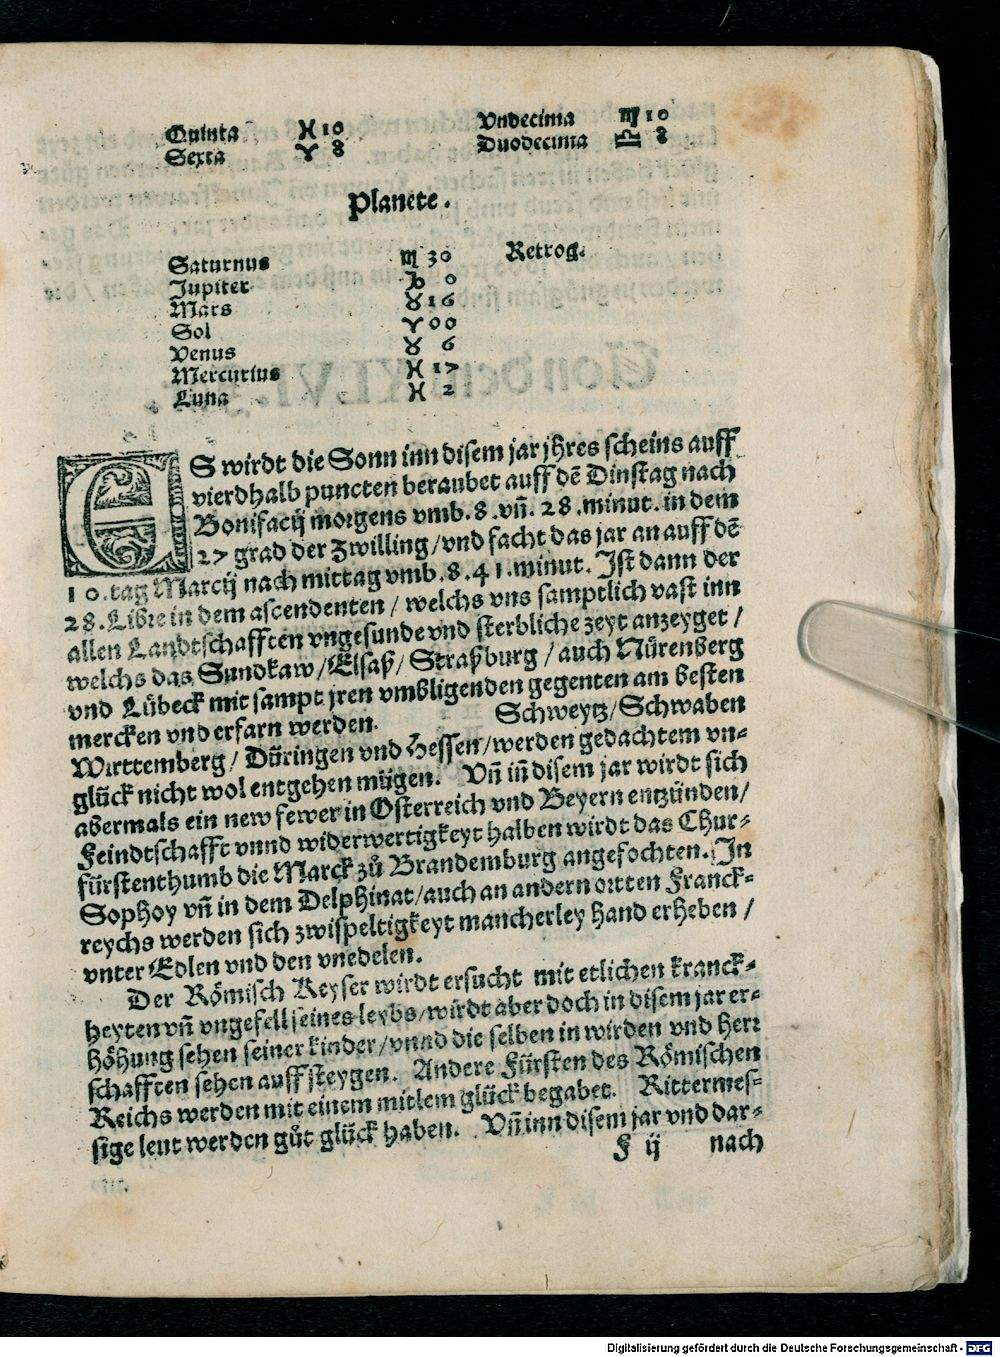 Quinta ♓ 10 Vndecima ♍ 10
Sexta ♈ 8 Duodecima ♎ 8
Planete.
Saturnus ♏ 30 Retrog.
Jupiter ♑ 0
Mars ♉ 16
Sol ♈ 00
Venus ♉ 6
Mercurius ♓ 17
Luna ♓ 2
ES wirdt die Sonn inn disem jar jhres scheins auff
vierdhalb puncten beraubet auff dē Dinstag nach
Bonifacij morgens vmb. 8. vñ. 28. minut. in dem
27 grad der Zwilling / vnd facht das jar an auff dē
10. tag Marcij nach mittag vmb. 8. 41. minut. Ist dann der
28. Libre in dem ascendenten / welchs vns samptlich vast inn
allen Landtschafften vngesunde vnd sterbliche zeyt anzeyget /
welchs das Sundkaw / Elsaß / Straßburg / auch Nürenberg
vnd Lübeck mit sampt jren vmbligenden gegenten am besten
mercken vnd erfarn werden. Schweytz / Schwaben
Wirttemberg / Düringen vnd Hessen / werden gedachtem vn-
glück nicht wol entgehen mügen. Vñ iñ disem jar wirdt sich
abermals ein new fewer in Osterreich vnd Beyern entzünden /
Feindtschafft vnnd widerwertigkeyt halben wirdt das Chur-
fürstenthumb die Marck zů Brandemburg angefochten. In
Sophoy vñ in dem Delphinat / auch an andern ortten Franck-
reychs werden sich zwispeltigkeyt mancherley hand erheben /
vnter Edlen vnd den vnedelen.
Der Römisch Keyser wirdt ersucht mit etlichen kranck-
heyten vñ vngefell seines leybs / wirdt aber doch in disem jar er-
höhung sehen seiner kinder / vnnd die selben in wirden vnd herr
schafften sehen auff steygen. Andere Fürsten des Römischen
Reichs werden mit einem mitlem glück begabet. Rittermes-
sige leut werden gůt glück haben. Vñ inn disem jar vnd dar-
F ij nach
Digitalisierung gefördert durch die Deutsche Forschungsgemeinschaft - DFG